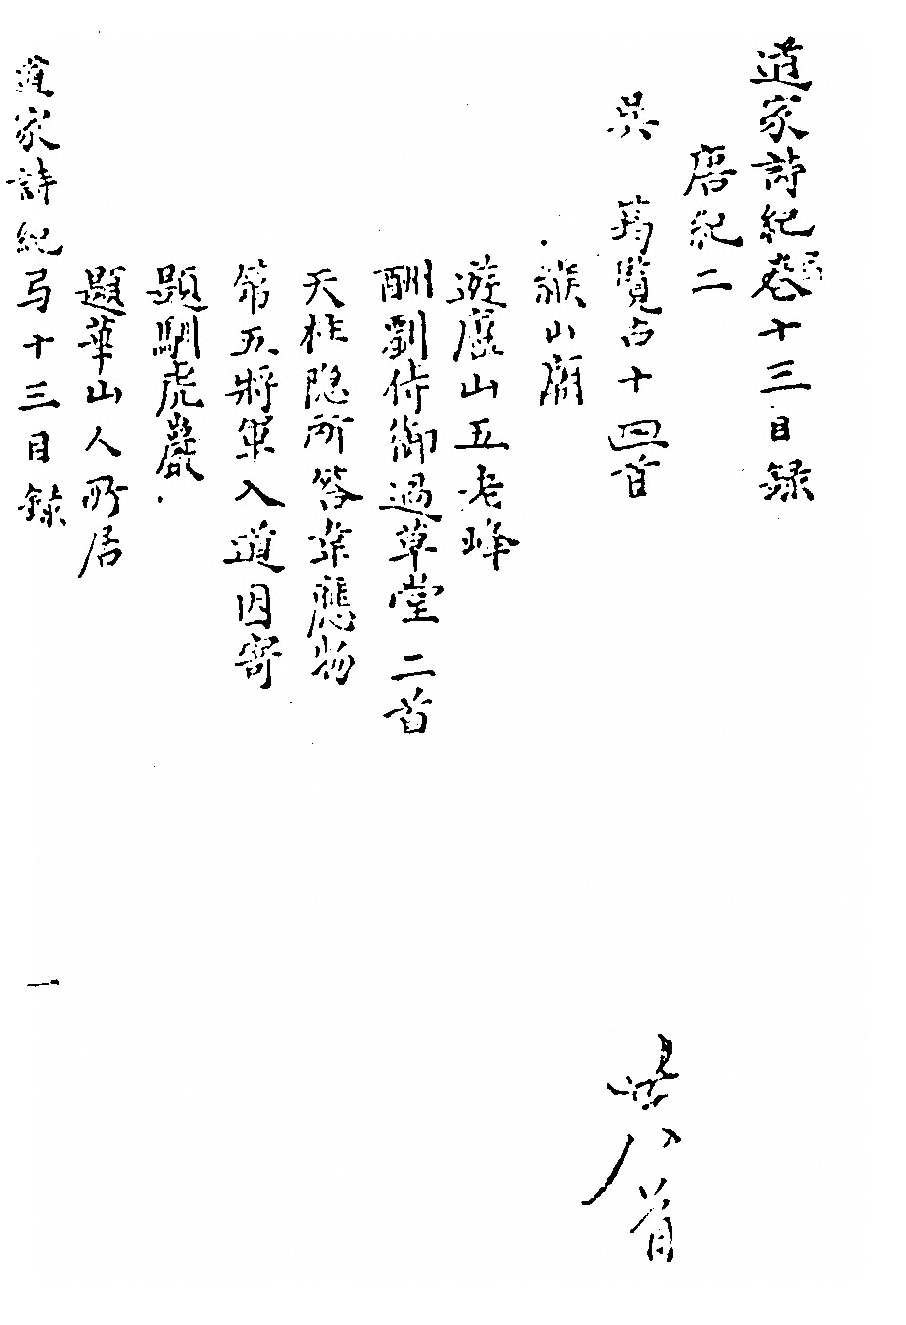 道家詩紀卷十三目録
唐紀二
吳 筠覽古十四首
緱山廟
遊廬山五老峰
酬劉侍御過草堂二首
天柱隐所答韋應物
第五將軍入道因寄
題馴虎巖
題華山人所居
道家詩紀弓十三目録
一
八首